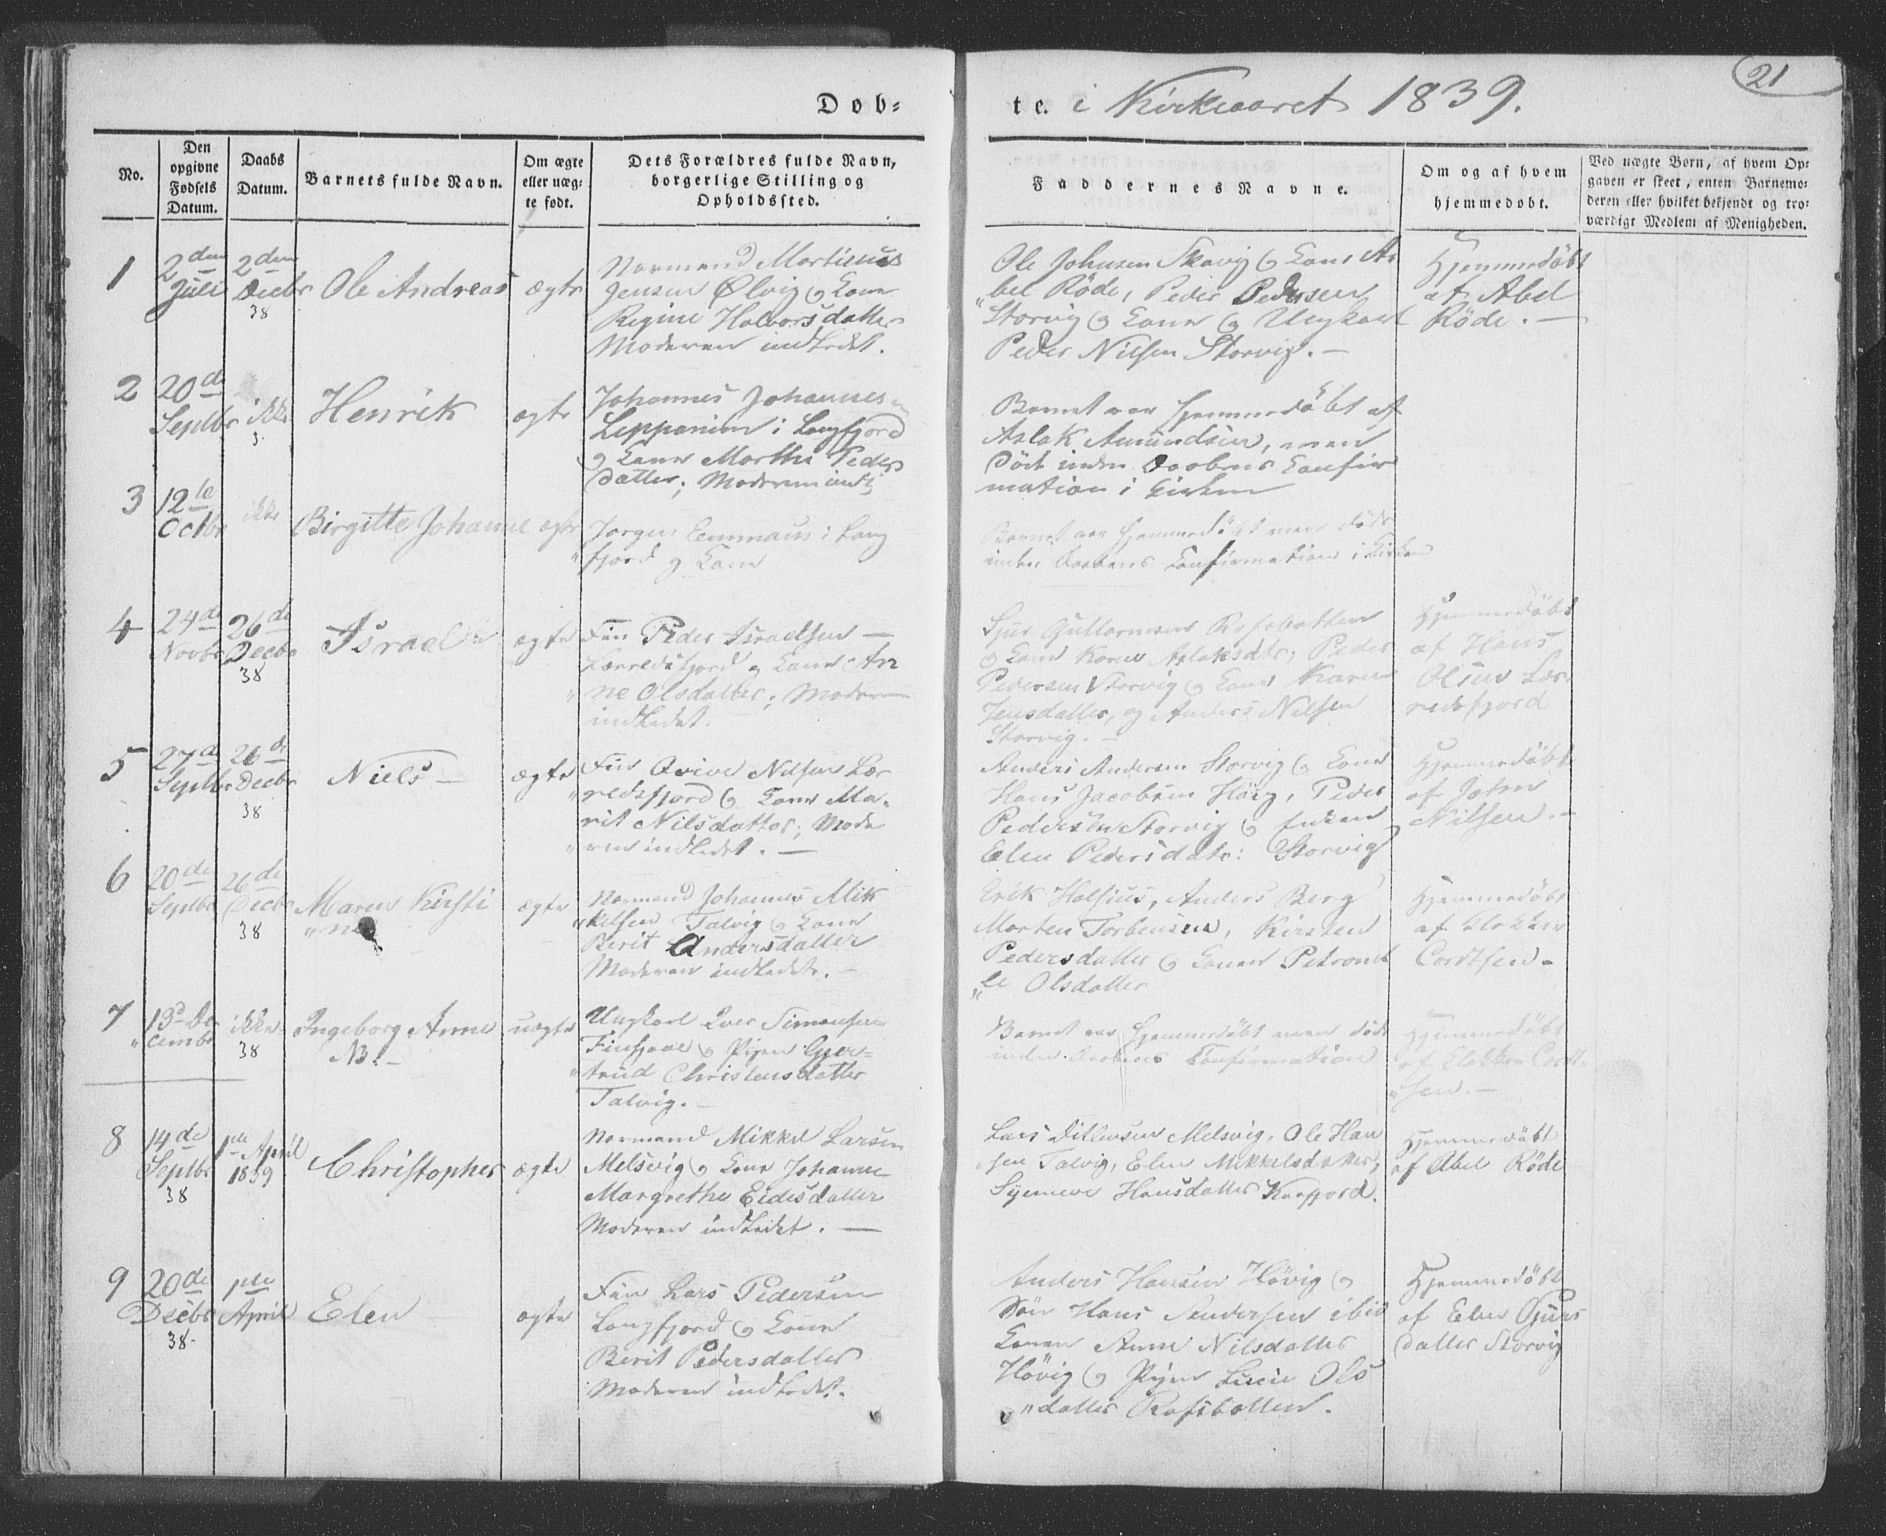 Dob=
te. i Kirkeaaret 1839.
21
No.
Den
opgivne
Fødsels
Datum.
Daabs
Datum.
Barnets fulde Navn.
Om ægte
eller uæg-
te født.
Dets Forældres fulde Navn,
borgerlige Stilling og
Opholdssted.
Faddernes Navne.
Om og af hvem
hjemmedøbt.
Ved uægte Børn, af hvem Op-
gaven er skeet, enten Barnemo-
deren eller hvilket bekjendt og tro-
værdigt Medlem af Menigheden.
1
2den
Juli
2den
Decbr
38
Ole Andreas
ægte
Normand Martinus
Jensen Ølvig og Kone
Regine Halvorsdatter
Moderen indledet.
Ole Johnsen Skavig og Kone A-
bel Röde, Peder Pedersen
Storvig og Kone og Ungkarl
Peder Nilsen Storvig. –
Hjemmedöbt
af Abel
Röde. –
2
20de
Septbr
ikke
Henrik
ægte
Johannes Johannes-
Leppänen i Langfjord
og Kone Marthe Peders
datter; Moderen indl
Barnet var hjemmedöbt af
Aslak Amundsen, men
död inden Daabens Confir
mation i Kirken
3
12te
Octbr
ikke
Birgitte Johanne
ægte
Jørgen Emmaus i Lang
fjord og Kone
Barnet var hjemmedöbt men döde
inden Daabens Confirmation i Kirken
4
24de
Novbr
26de
Decbr
38
Israel
ægte
Fin Peder Israelsen –
Lerredsfjord og Kone An
ne Olsdatter; Moderen
indledet.
Sjur Guttormsen Rafsbotten
og Kone Karen Aslaksdtr, Peder
Pedersen Storvig og Kone Karen
Jensdatter, og Anders Nilsen
Storvig. –
Hjemmedöbt
af Hans
Olsen Ler
redsfjord
5
27de
Septbr
26de
Decbr
38
Niels –
ægte
Fin Qvive Nilsen Ler
redsfjord og Kone Ma-
rit Nilsdatter; Mode
ren indledet. –
Anders Andersen Storvig og Kone
Hans Jacobsen Hög, Peder
Pedersen Storvig og Enken
Elen Pedersdatr: Storvig
Hjemmedöbt
af John
Nilsen. –
6
20de
Septbr
26de
Decbr
38
Maren Kirsti
ne
ægte
Normand Johannes Mik
kelsen Talvig og Kone
Berit Andersdatter
Moderen indledet. –
Erik Holsius, Anders Berg
Morten Torbensen, Kirsten
Pedersdatter og Konen Petronel
le Olsdatter
Hjemmedöbt
af Klokker
Cordtsen –
7
13de De
cembr
ikke
38
Ingeborg Anne
NB. –
uægte
Ungkarl Iver Simonsen
og Pigen Gjer-
trud Christensdatter
Talvig. –
Barnet var hjemmedöbt men döde
inden Daabens Confirmation
Hjemmedöbt
af Klokker Cordt-
sen. –
8
14de
Septbr
38
1ste April
1839
Christopher
ægte
Normand Mikkel Larsen
Melsvig og Kone Johanne
Margrethe Eidesdatter
Moderen indledet. –
Lars Ditlevsen Melsvig, Ole Han
sen Talvig, Elen Mikkelsdatter,
Synneve Hansdatter Kaafjord.
Hjemmedöbt
af Abel Röde
9
20de
Decbr
38
1ste
April
Elen
ægte
Fin Lars Pedersen
Langfjord og Kone
Berit Pedersdatter
Moderen indledet.
Anders Hansen Hövig og
Sön Hans Andersen ibid
Konen Anne Nilsdatter
Hövig og Pigen Lucie Ols
datter Rafsbotten.
Hjemmedöbt
af Elen Sjurs
datter Storvig